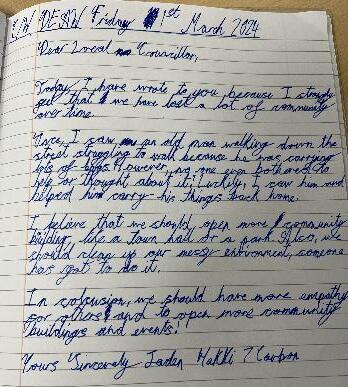 Friday 1st March 2024
Dear Local Councillor,
Today, I have wrote to you because I strongly
feel that we have lost a lot of community
over time.
Once, I saw an old man walking down the
street struggling to walk because he was carrying
lots of bags. However, no one even bothered to
help or thought about it. Luckily, I saw him and
helped him carry his things back home.
I believe that we should open more community
building, like a town hall or a park. Also, we
should clean up our messy environment, someone
has got to do it.
In conclusion, we should have more empathy
for others and to open more community
buildings and events!
Yours Sincerely Jaden Makki 7